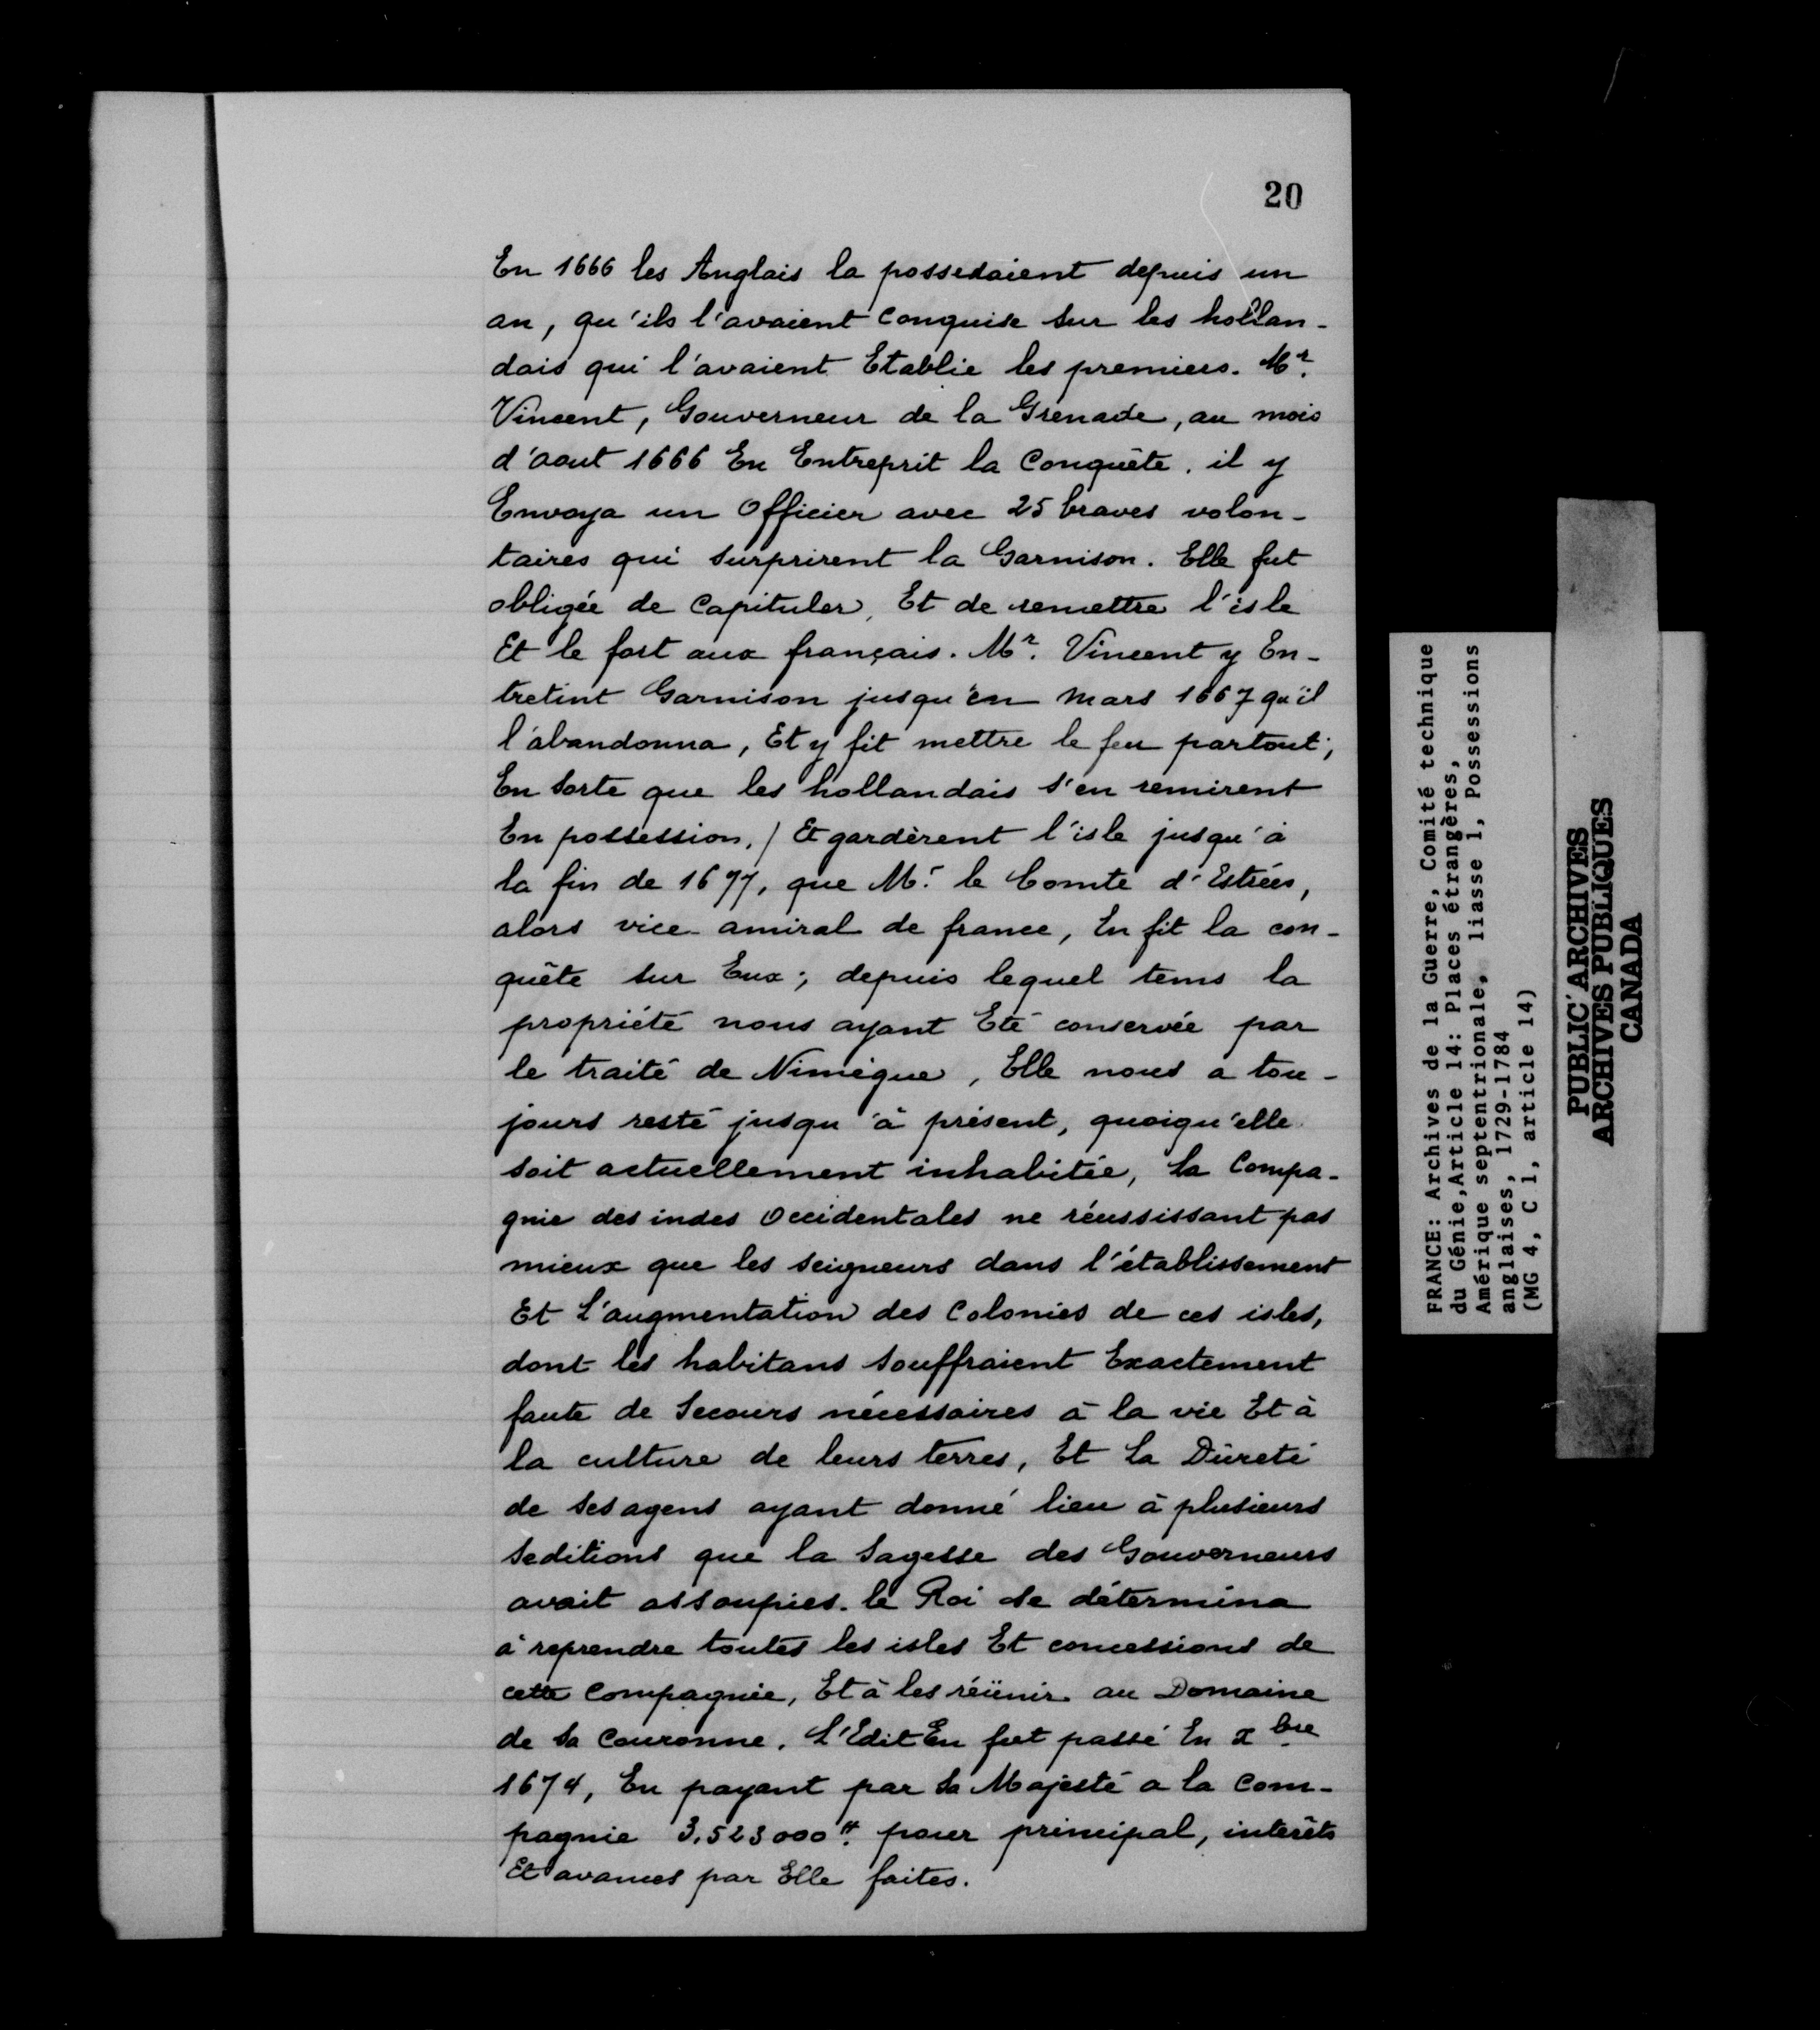 20
En 1666 les Anglais la possedaient depuis un
an, qu'ils l'avaient Conquise sur les hollan-
dais qui l'avaient Etablie les premiers. Mr.
Vincent, Gouverneur de la Grenade, au mois
d'aout 1666 En Entreprit la Conquête. il y
Envoya un Officier avec 25 braves volon-
taires qui surprirent la Garnison. Elle fut
obligée de Capituler, Et de remettre l'isle
Et le fort aux français. Mr. Vincent y En-
tretint Garnison jusqu'en mars 1667 qu'il
l'abandonna, Et y fit mettre le feu partout;
En sorte que les hollandais s'en remirent
En possession, / Et gardèrent l'isle jusqu'à
la fin de 1677, que Mr. le Comte d'Estrées,
alors vice-amiral de france, En fit la con-
quête sur Eux; depuis lequel tems la
propriété nous ayant Eté conservée par
le traité de Nimègue, Elle nous a tou-
jours resté jusqu'à présent, quoiqu'elle
soit actuellement inhabitée, la Compa-
gnie des indes Occidentales ne réussissant pas
mieux que les seigneurs dans l'établissement
Et l'augmentation des Colonies de ces isles,
dont les habitans souffraient Exactement
faute de Secours nécessaires à la vie Et à
la culture de leurs terres, Et la Dureté
de ses agens ayant donné lieu à plusieurs
seditions que la Sagesse des Gouverneurs
avait assoupies. le Roi se détermina
à reprendre toutes les isles Et concessions de
cette Compagnie, Et à les réünir au Domaine
de sa Couronne. L'Edit En fut passé En xbre
1674, En payant par Sa Majesté a la Com-
pagnie 3,523000#. pour principal, interêts
Et avances par Elle faites.
FRANCE: Archives de la Guerre, Comité technique
du Génie,Article 14: Places étrangères,
Amérique septentrionale, liasse 1, Possessions
anglaises, 1729-1784
(MG 4, C 1, article 14)
PUBLIC ARCHIVES
ARCHIVES PUBLIQUES
CANADA